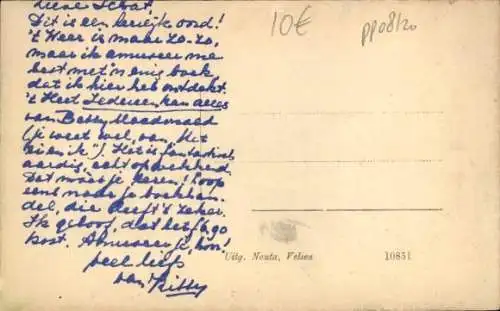 Lieve Schat,
Dit is een heerlijk oord!
't Weer is maar zo-zo,
maar ik amuseer me
best met 'n enig boek
dat ik hier heb ontdekt.
't Heet Iedereen kan alles
van Betty Macdonald
(je weet wel, van Het
ei en ik"). Het is fantastisch
aardig, echt opwekkend.
Dat moet je lezen! Loop
eens naar je boekhan-
del, die heeft 't zeker.
Ik geloof, dat het f 6.90
kost. Amuseer je, hoor!
veel liefs
van Kitty
10€
pp08/20
Uitg. Nenta, Velsen
10851